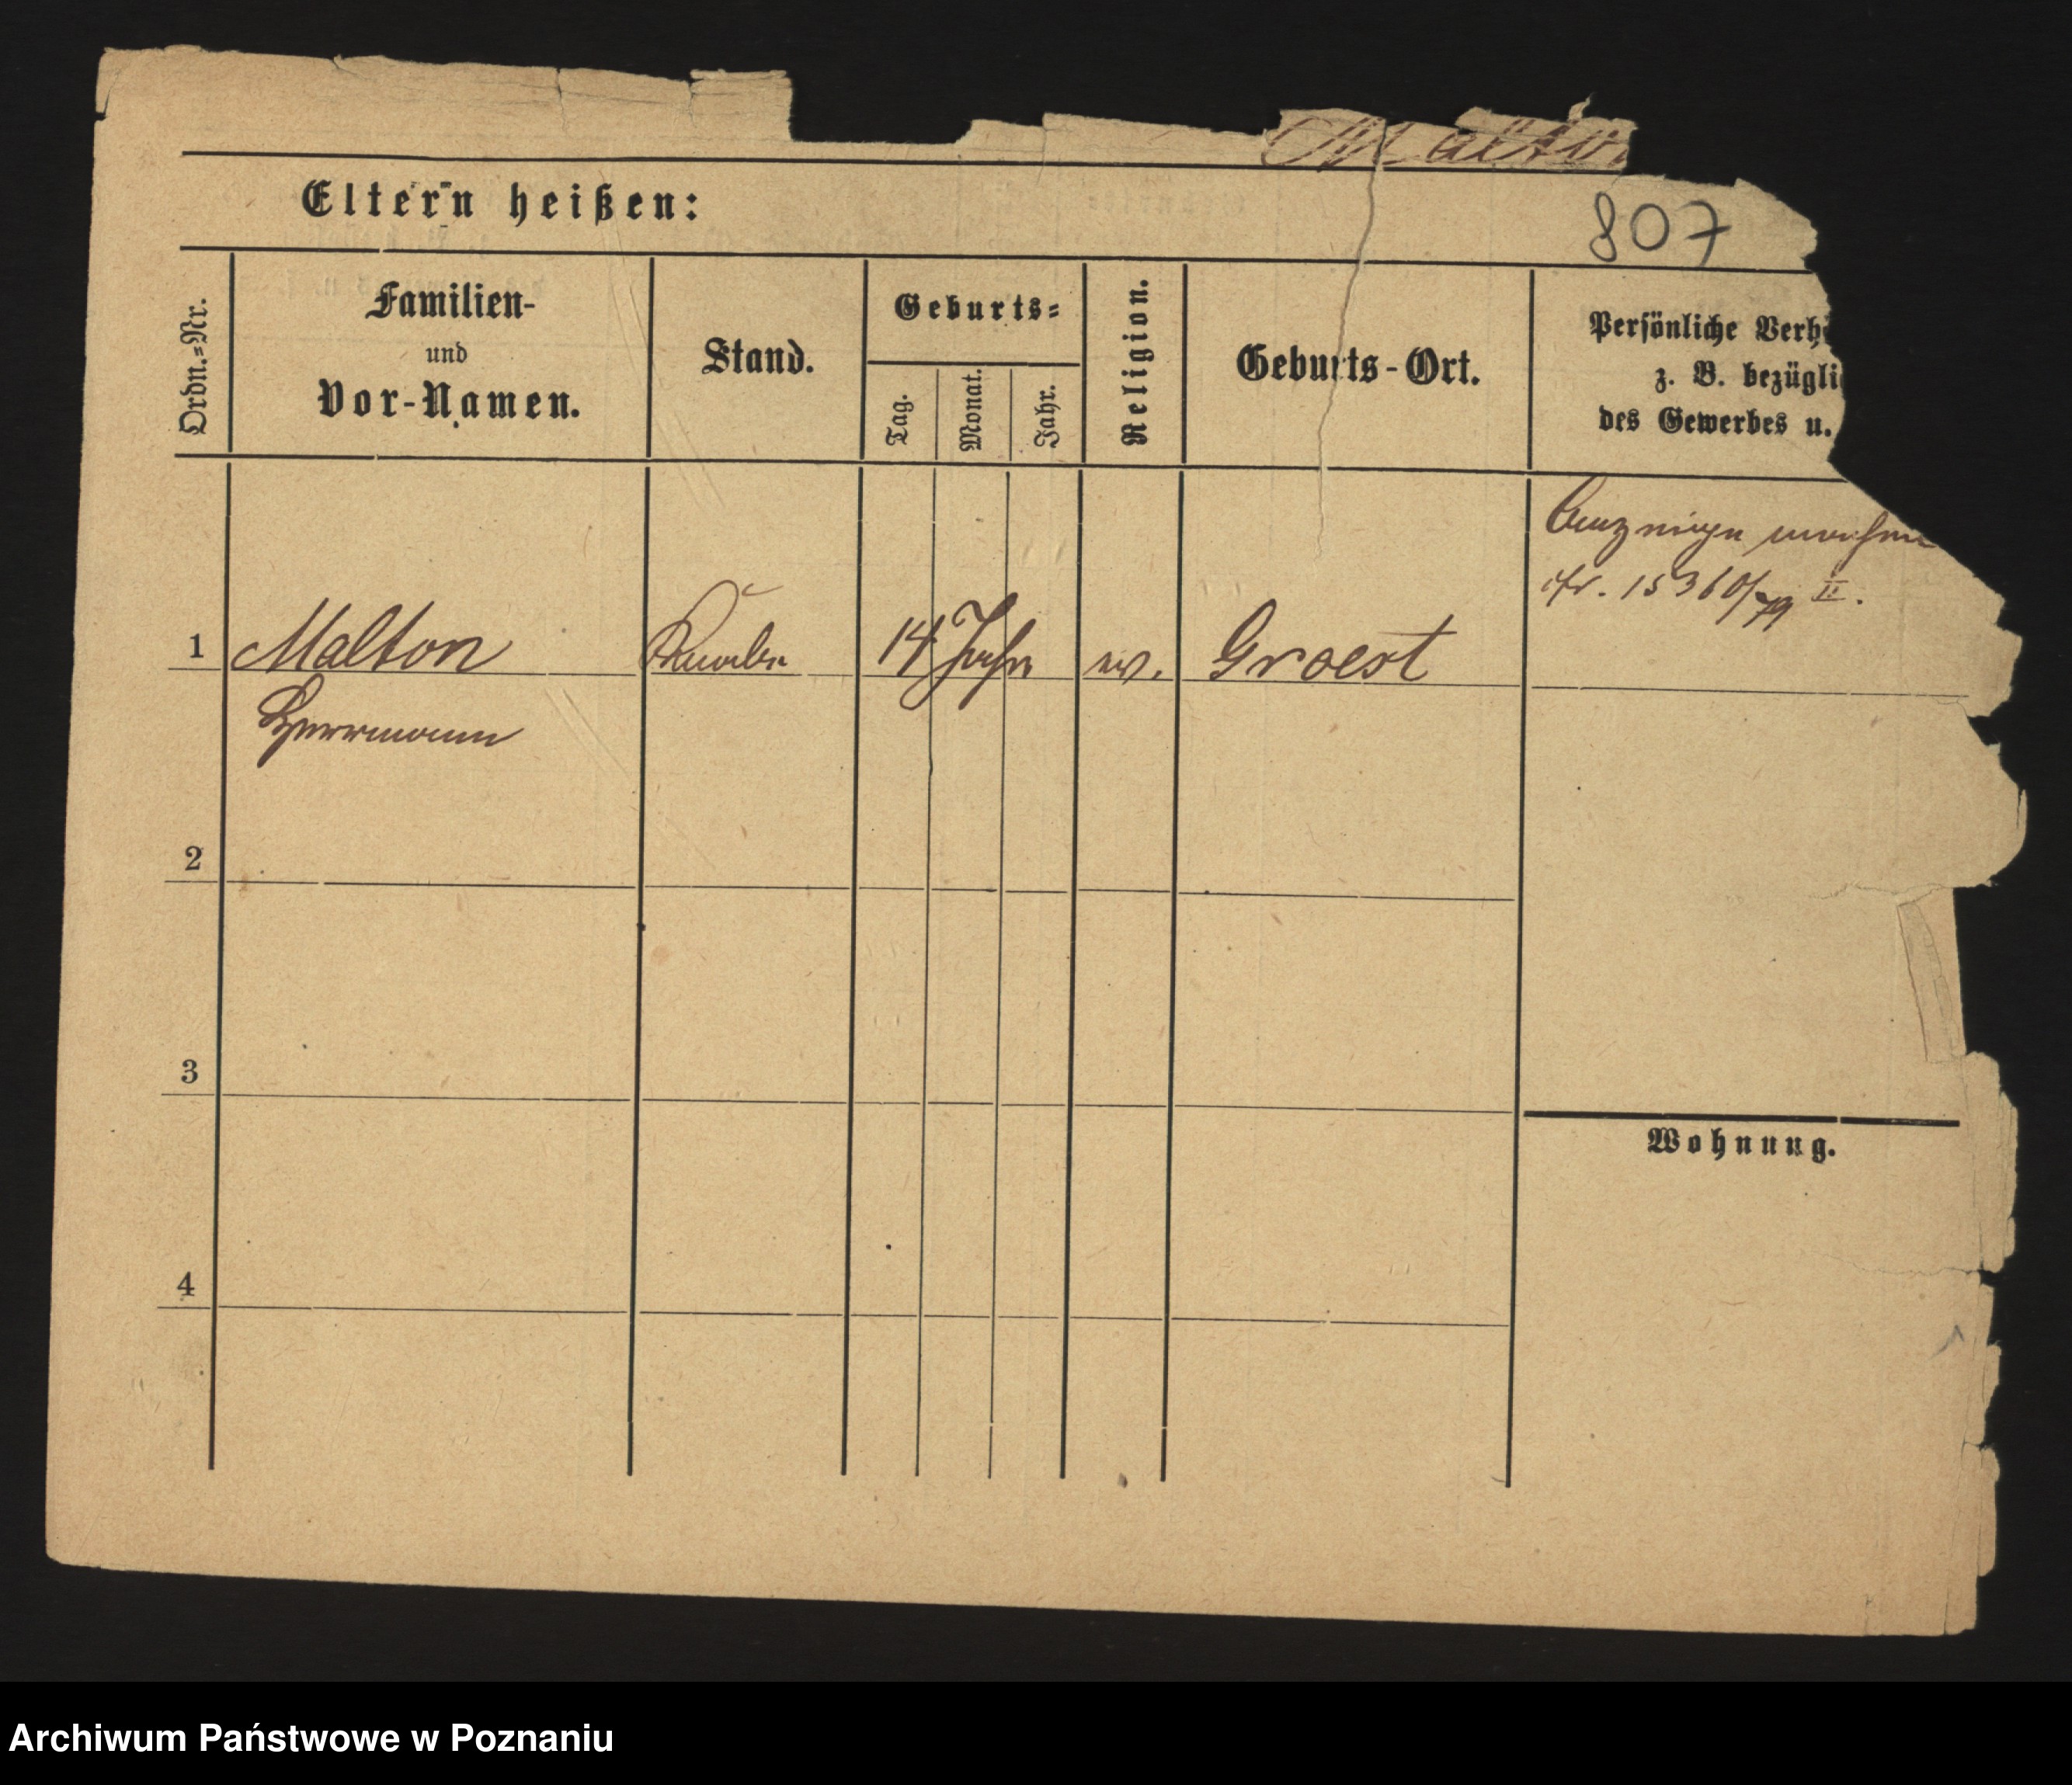 Malto
Eltern heißen:
807
Ordn.=Nr.
Familien-
und
Vor-Namen.
Stand.
Geburts=
Tag.
Monat.
Jahr.
Religion.
Geburts-Ort.
Persönliche Verh
z. B. bezügli
des Gewerbes u.
1
Malton
Herrmann
Knabe
14 Jahr
ev.
Groest
cfr. 15360/79 II.
2
3
4
Wohnung.
Archiwum Państwowe w Poznaniu